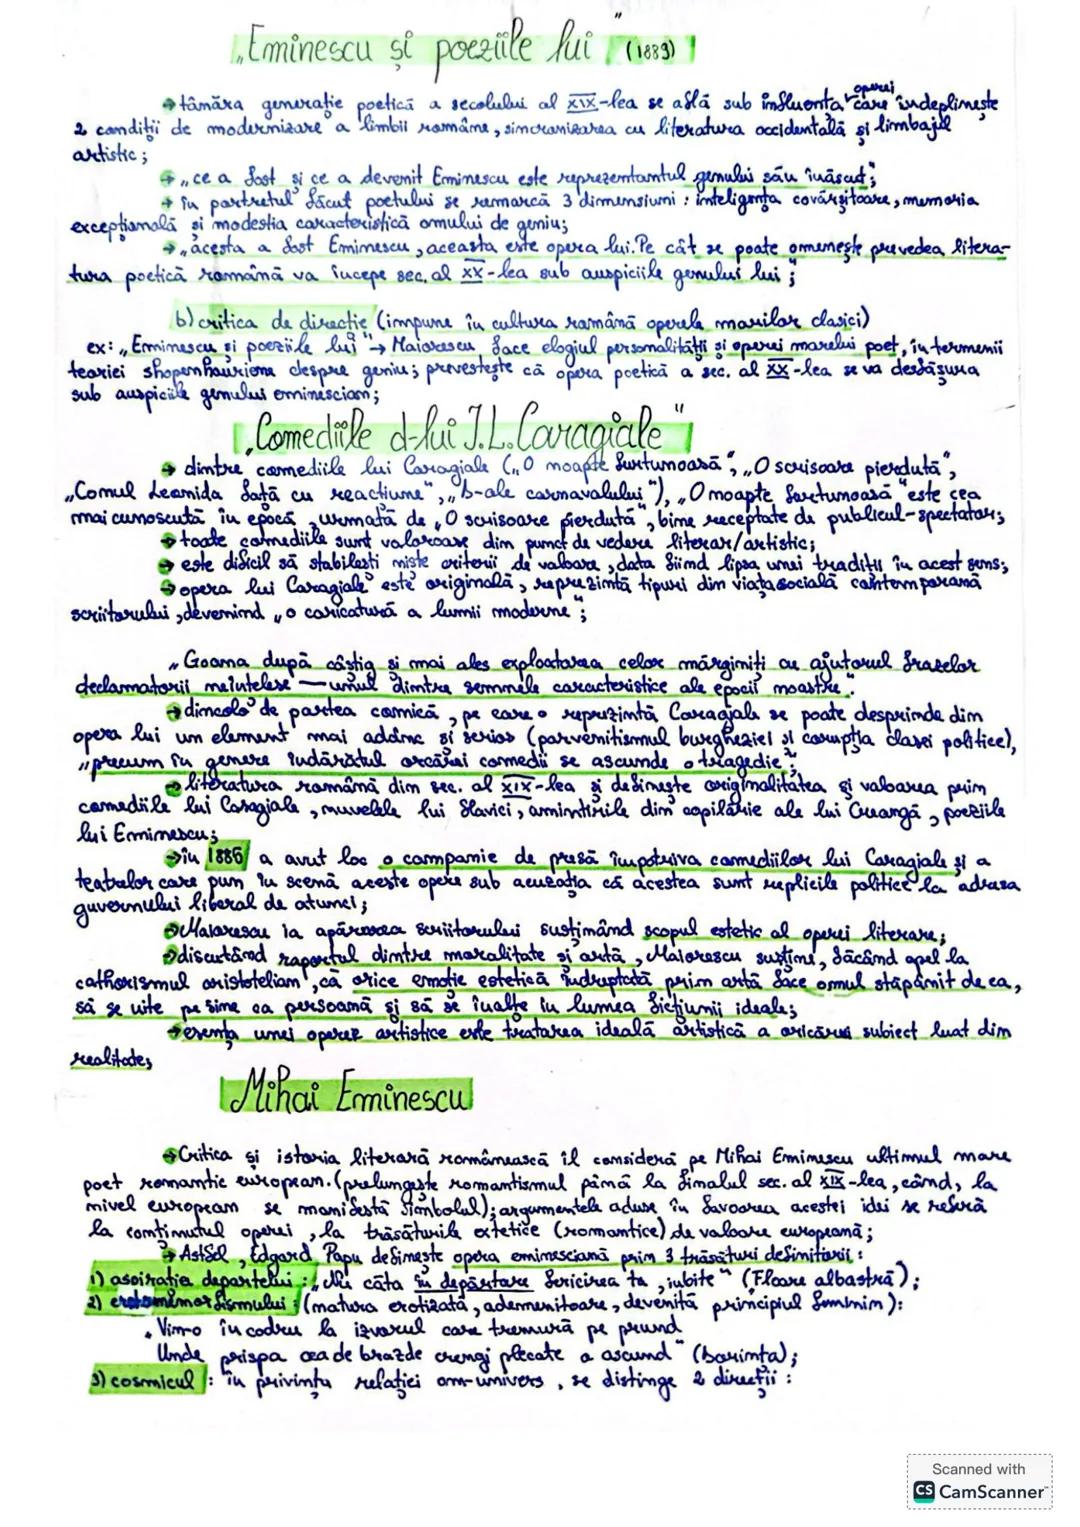 „Eminescu și poeziile lui" (1889)
→ tânăra generație poetică a secolului al XIX-lea se află sub influența operei care îndeplinește
2 condiții de modernizare a limbii române, sincronizarea cu literatura occidentală și limbajul
artistic;
→ „ce a fost și ce a devenit Eminescu este reprezentantul geniului său înăscut";
→ în portretul făcut poetului se remarcă 3 dimensiuni: inteligența covârșitoare, memoria
excepțională și modestia caracteristică omului de geniu;
→ „acesta a fost Eminescu, aceasta este opera lui. Pe cât se poate omenește prevedea litera-
tura poetică română va începe sec. al XX-lea sub auspiciile geniului lui";
b) critica de direcție (impune în cultura română operele marilor clasici)
ex: „Eminescu și poeziile lui" → Maiorescu face elogiul personalității și operei marelui poet, în termenii
teoriei shopenhauriene despre geniu; prevestește că opera poetică a sec. al XX-lea se va desfășura
sub auspiciile geniului eminescian;
„Comediile d-lui I.L. Caragiale"
→ dintre comediile lui Caragiale („O noapte furtunoasă", „O scrisoare pierdută",
„Conul Leonida față cu reacțiunea", „D-ale carnavalului"), „O noapte furtunoasă" este cea
mai cunoscută în epocă, urmată de „O scrisoare pierdută", bine receptate de publicul-spectator;
→ toate comediile sunt valoroase din punct de vedere literar/artistic;
→ este dificil să stabilești niște criterii de valoare, dată fiind lipsa unei tradiții în acest sens;
→ opera lui Caragiale este originală, reprezintă tipuri din viața socială contemporană
scriitorului, devenind „o caricatură a lumii moderne";
„Goana după câștig și mai ales exploatarea celor mărginiți cu ajutorul frazelor
declamatorii neînțelese — unul dintre semnele caracteristice ale epocii noastre".
→ dincolo de partea comică, pe care o reprezintă Caragiale se poate desprinde din
opera lui un element mai adânc și serios (parvenitismul burgheziei și corupția clasei politice),
„precum în genere îndărătul oricărei comedii se ascunde o tragedie";
→ literatura română din sec. al XIX-lea își definește originalitatea și valoarea prin
comediile lui Caragiale, nuvelele lui Slavici, amintirile din copilărie ale lui Creangă, poeziile
lui Eminescu;
→ în 1885 a avut loc o campanie de presă împotriva comediilor lui Caragiale și a
teatrelor care pun în scenă aceste opere sub acuzația că acestea sunt replicile politice la adresa
guvernului liberal de atunci;
→ Maiorescu ia apărarea scriitorului susținând scopul estetic al operei literare;
→ discutând raportul dintre moralitate și artă, Maiorescu susține, făcând apel la
cathorismul aristotelian, că orice emoție estetică îndreptată prin artă face omul stăpânit de ea,
să se uite pe sine ca persoană și să se înalțe în lumea ficțiunii ideale;
→ esența unei operez artistice este tratarea ideală artistică a oricărui subiect luat din
realitate;
Mihai Eminescu
→ Critica și istoria literară românească îl consideră pe Mihai Eminescu ultimul mare
poet romantic european. (prelungește romantismul până la finalul sec. al XIX-lea, când, la
nivel european se manifestă simbolul); argumentele aduse în favoarea acestei idei se referă
la conținutul operei, la trăsăturile extetice (romantice) de valoare europeană;
→ Astfel, Edgard Papu definește opera eminesciană prin 3 trăsături definitorii:
1) aspirația departelui: „Nu căta în depărtare fericirea ta, iubite" (Floare albastră);
2) erotomorfismului: (natura erotizată, ademenitoare, devenită principiul feminin):
„Vino în codru la izvorul care tremură pe prund
Unde prispa cea de brazde crengi plecate o ascund" (Dorința);
3) cosmicul: în privința relației om-univers, se distinge 2 direcții:
Scanned with
CS CamScanner